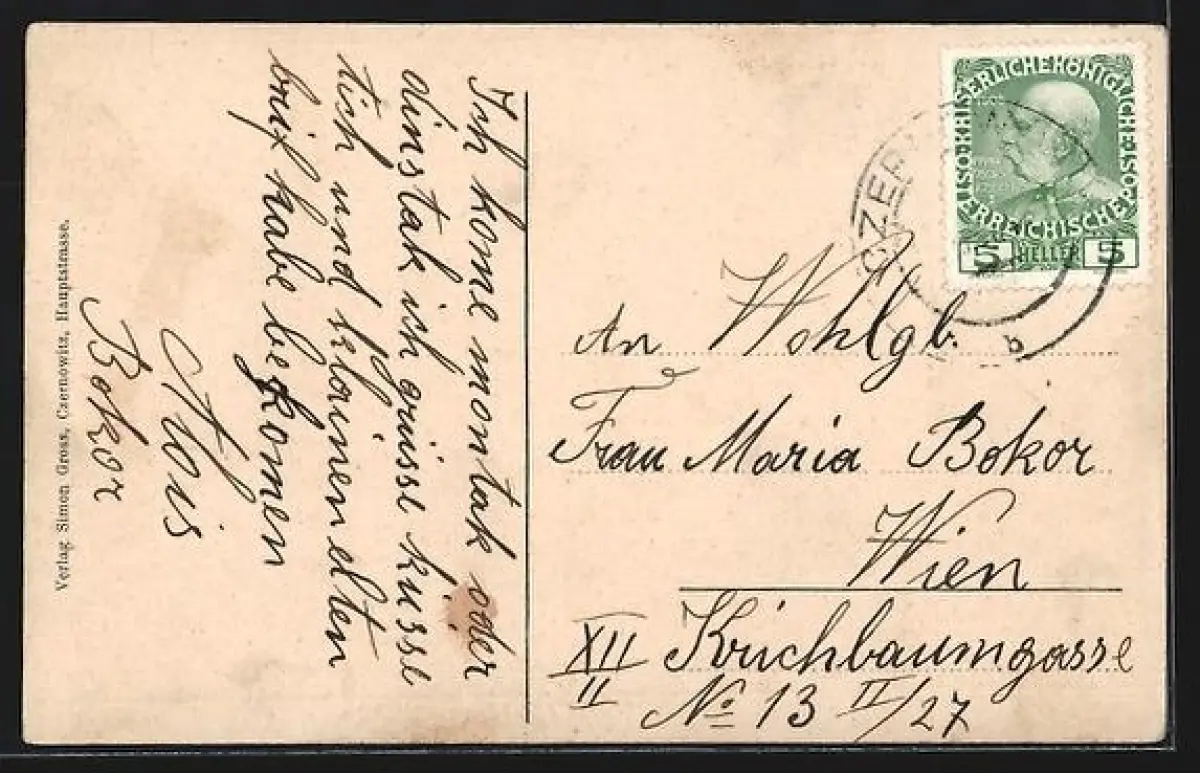 Ich kome montak oder
dinstak ich grüsse küsse
tich und
brif habe bekomen
Alois
Bokor
Verlag Simon Gross, Czernowitz, Hauptstrasse.
KAISERLICHE KÖNIGLICHE ÖSTERREICHISCHE POST
5 HELLER 5
CZER
b
An Wohlgb.
Frau Maria Bokor
Wien
XII/II Krichbaumgasse
No 13 II/27